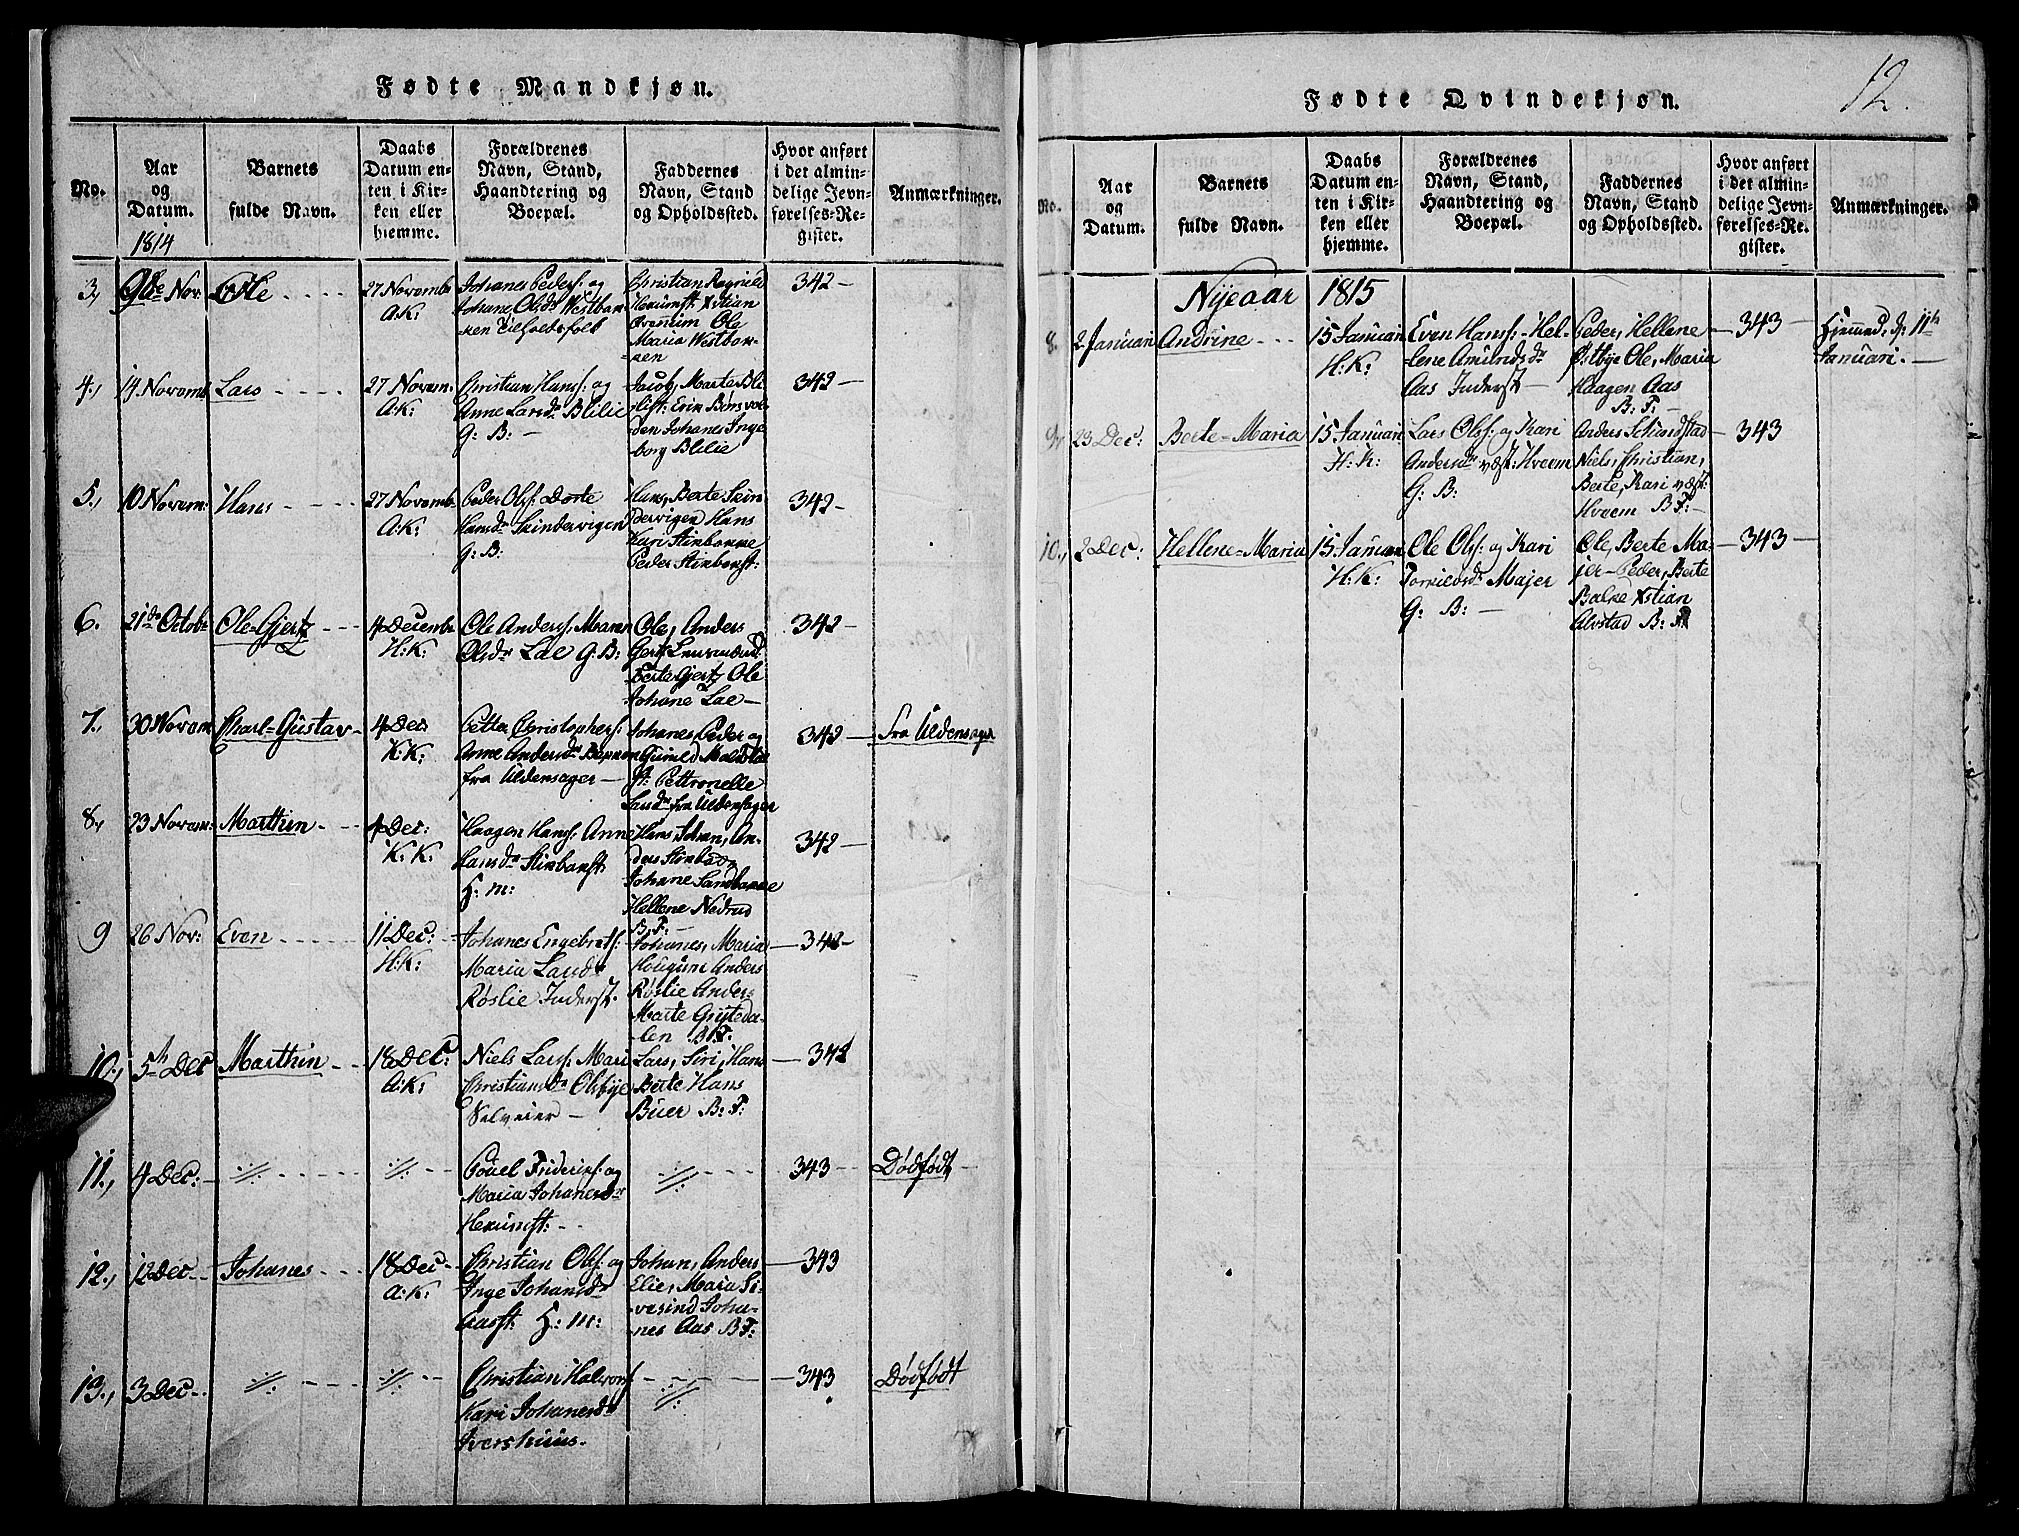 Fødte Mandkjøn.
No.
Aar
og
Datum.
1814
Barnets
fulde Navn.
Daabs
Datum en-
ten i Kir-
ken eller
hjemme.
Forældrenes
Navn, Stand,
Haandtering og
Boepæl.
Faddernes
Navn, Stand
og Opholdssted.
Hvor anført
i det almin-
delige Jevn-
førelses-Re-
gister.
Anmærkninger.
3,
Nov
Ole
27 Novembr
A:K:
Johanes Peders: og
Johane Olsdr Westbon-
Christian
Ole
Maria Westbon-
342 -
4,
14 Novemb
Lars
27 Novem:
A:K:
Christian Hans: og
Anne Larsdr Blilie
G: B: -
Jacob, Marte Bli-
den Johanes Inge
borg Blilie
342 -
5,
10 Novem:
Hans
27 Novemb
A:K:
Peder Ols: Dorte
Hansdr Skindervigen
G: B:
Hans, Berte Skin
dervigen Hans
Kari
Peder
342 -
6.
21de Octobr
Ole-Gjertz
4 Decembr
H:K:
Ole Anders: Maren
Olsdr Lae G:B:
Ole, Anders
Berte Gjertz Ole
Johane Lae -
342 -
7,
30 Novem
Charl=Gustav
4 Dec
K:K:
Petter Christophers:
Anne Andersdr
fra Uldensager -
Johanes, Peder og
Gunild
st: Pettronelle
Larsdr fra Uldensager
342 -
fra Uldensager
8,
23 Novem:
Marthin
4 Dec:
K: K:
Haagen Hans: Anne
Hansdr
H: m:
Hans, Johan, An-
ders
Johane Sandbakke
Hellene Nedrud
B: F: -
342 -
9
26 Nov:
Even
11 Dec:
H:K:
Johanes Engebrets:
Maria Larsdr
Røslie Inderst.
Johanes, Maria
Hougum Anders
Røslie Anders
Marte Gristeda-
len B:F:
342 -
10,
5th Dec
Marthin
18 Dec:
A:K:
Niels Lars: Mari
Christiansdr Olsbye
Selveier -
Lars, Siri, Hans
Berte Hans
Buer B: F:
342
11,
4 Dec:
Poüel Friderics: og
Maria Johanesdr
343 -
Dødfødt -
12,
12 Dec
Johanes
18 Dec
A:K:
Christian Ols: og
Inge Johansdr
Aasst: H: m:
Johan, Anders
Elie, Maria Si-
vesind Joha-
nes Aas B F:
343
13,
3 Dec
Christian Halvors:
Kari Johanesdr
Ivershuus.
343
Dødfødt
Fødte Qvindekjøn.
12.
No.
Aar
og
Datum.
Barnets
fulde Navn.
Daabs
Datum en-
ten i Kir-
ken eller
hjemme.
Forældrenes
Navn, Stand,
Haandtering og
Boepæl.
Faddernes
Navn, Stand
og Opholdssted.
Hvor anført
i det almin-
delige Jevn-
førelses-Re-
gister.
Anmærkninger.
Nyeaar 1815
8.
2 Januari
Andrine
15 Januari
H:K:
Even Hans: - Hel-
lene Amundsdr
Aas Inderst -
Peder, Hellene
Østbye Ole, Maria
Haagen Aas
B: F: -
343 -
Hjemd. d. 11te
Januari. -
9,
23 Dec:
Berte=Maria
15 Januari
H: K:
Lars Ols: og Kari
Andersdr væst: Hveem
G: B:
Anders
Niels, Christian,
Berte, Kari væst:
Hveem B F: -
343
10,
2 Dec:
Hellene=Maria
15 Januari
H: K:
Ole Ols: og Kari
Majer
G: B: -
Ole, Berte Ma-
jer - Peder, Berte
Balke Xstian
Alvstad B: F:
343 -